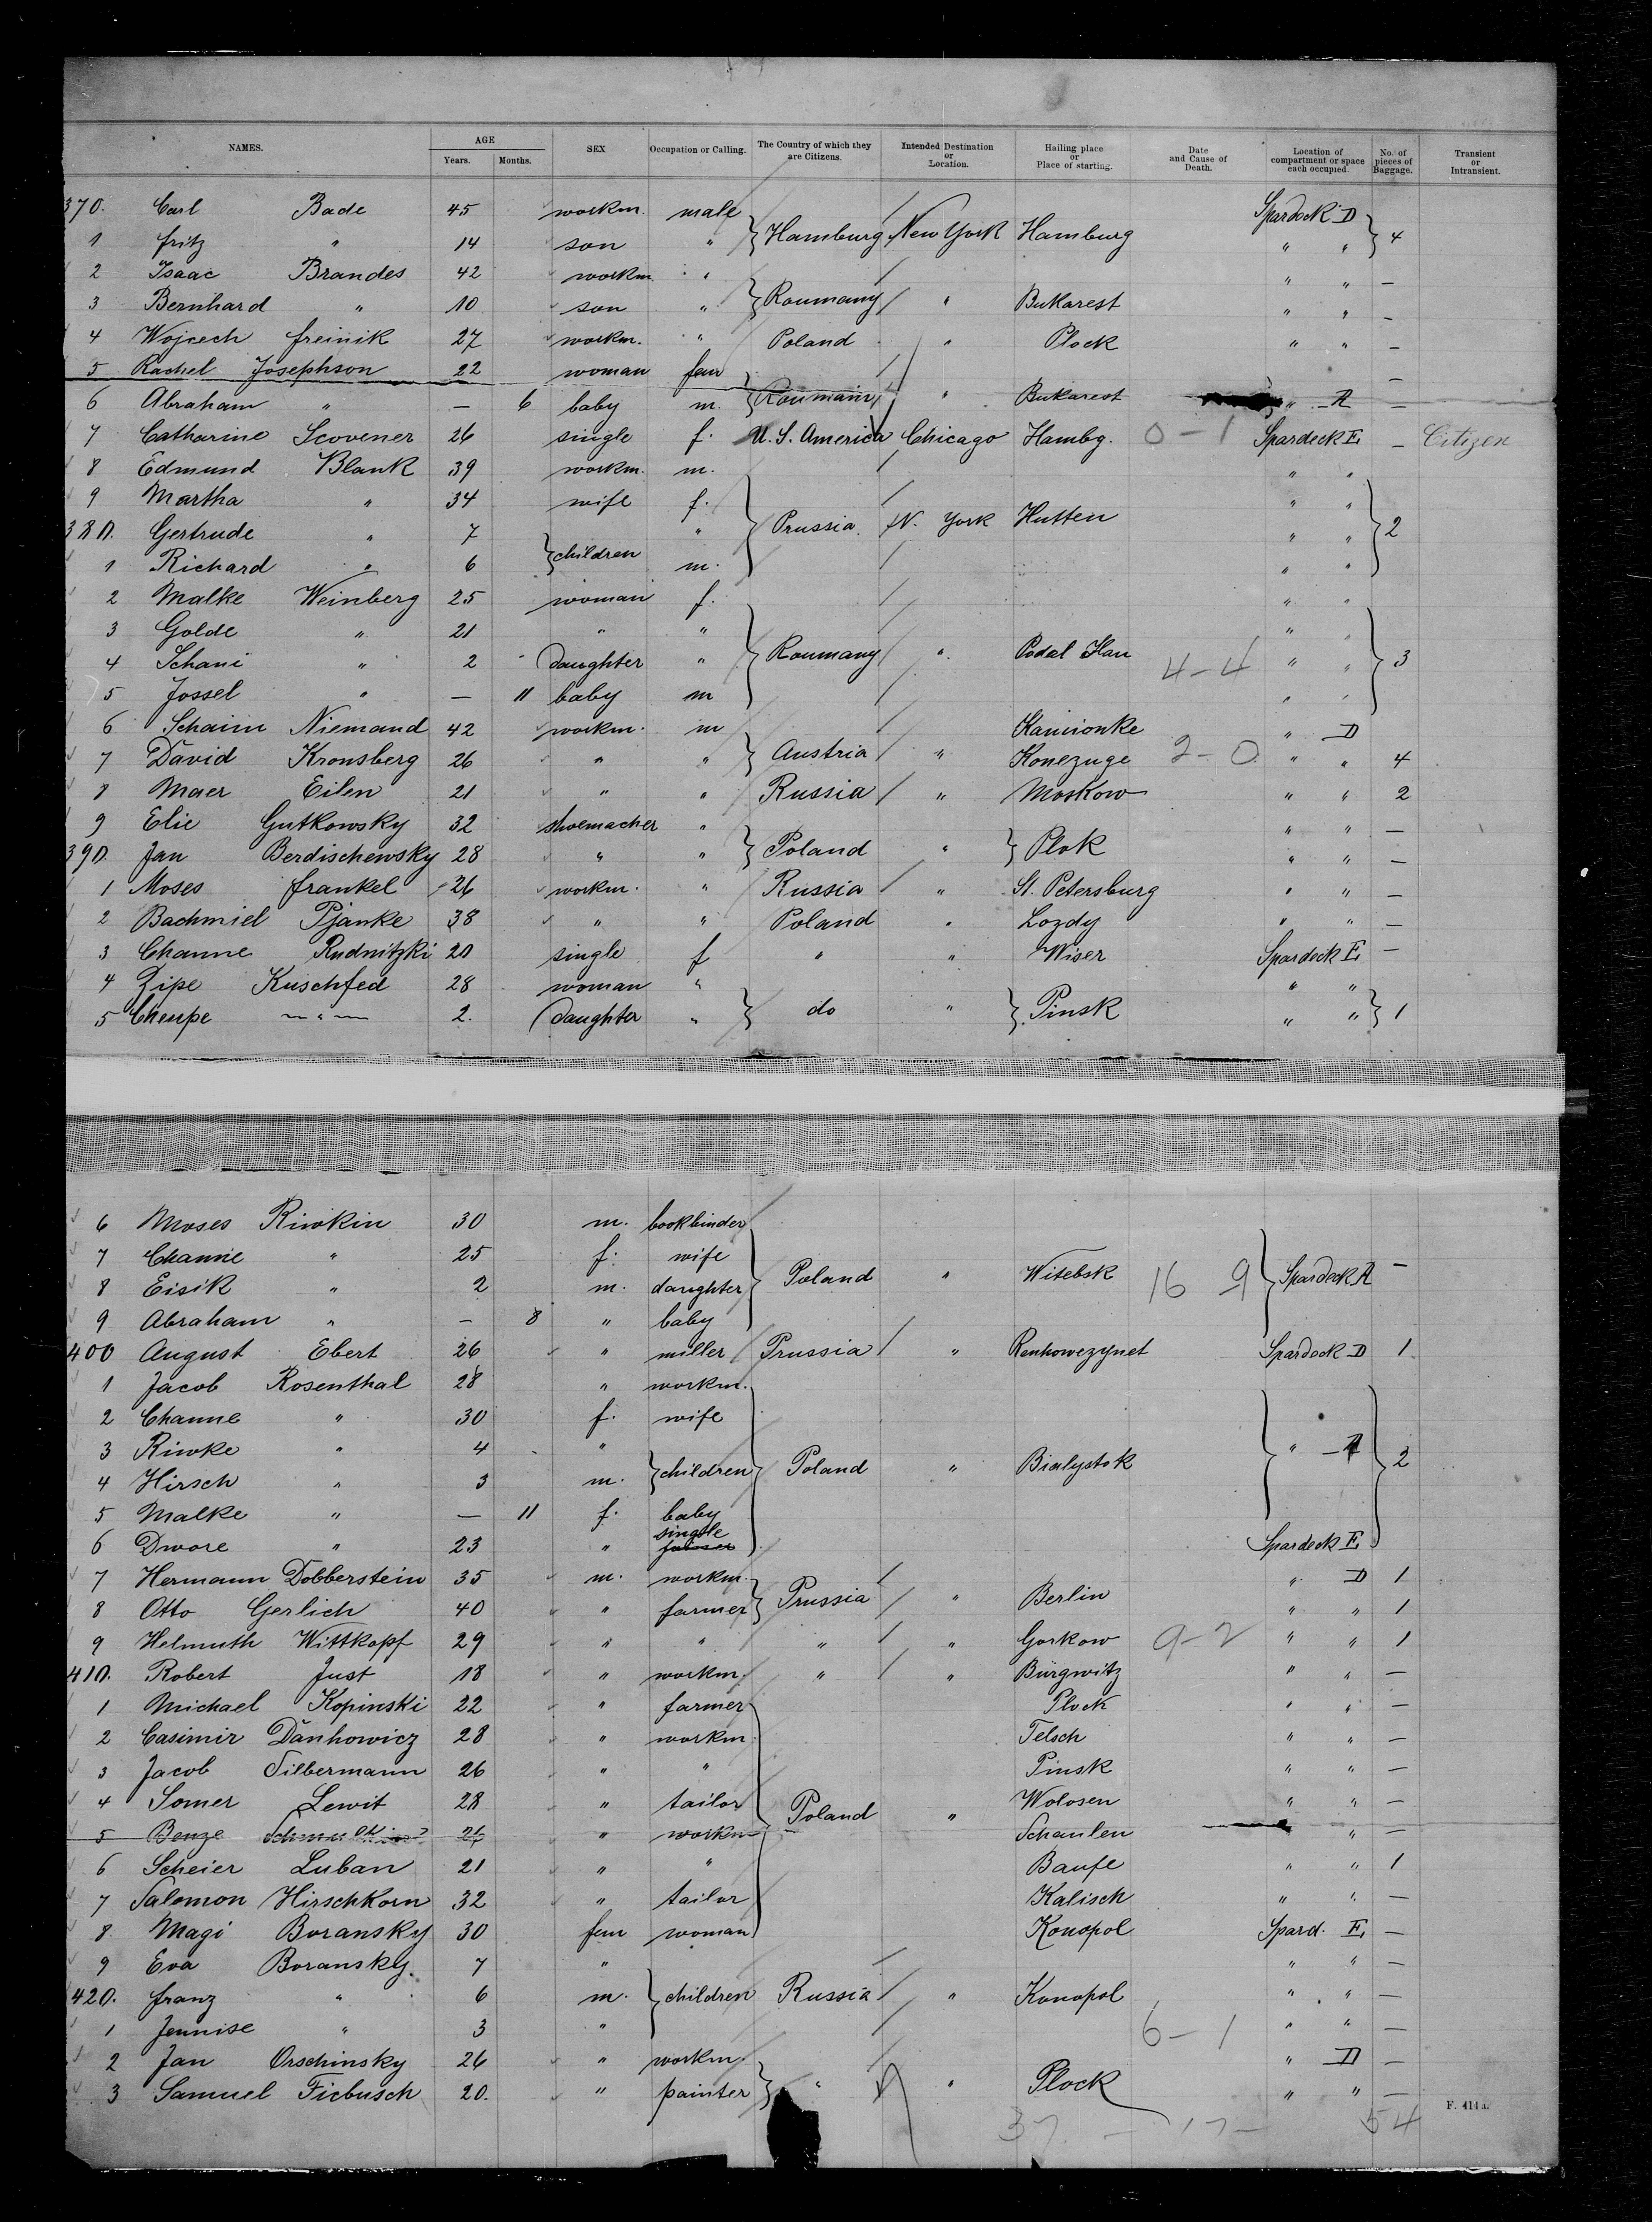 NAMES. AGE Years. Months. SEX Occupation or Calling. The Country of which they are Citizens. Intended Destination or Location. Hailing place or Place of starting. Date and Cause of Death. Location of compartment or space each occupied. No. of pieces of Baggage. Transient or Intransient.
370. Carl Bade 45 workm. male Spardeck D
1 Fritz " 14 son " } Hamburg New York Hamburg " " } 4
2 Isaac Brandes 42 workm. " " " —
3 Bernhard " 10 son " } Roumany " Bukarest " " —
4 Wojcech Freinik 27 workm. " Poland " Plock " " —
5 Rachel Josephson 22 woman fem —
6 Abraham " — 6 baby m. } Roumany " Bukarest " A —
7 Catharine Scovener 26 single f. U. S. America Chicago Hambg. 0-1 Spardeck E — Citizen
8 Edmund Blank 39 workm. m. " "
9 Martha " 34 wife f. " "
380. Gertrude " 7 " } Prussia N. York Hutten " " } 2
1 Richard " 6 } children m. " "
2 Malke Weinberg 25 woman f. " "
3 Golde " 21 " " " "
4 Schani " 2 daughter " } Roumany " Podal Ilau 4-4 " " } 3
5 Jossel " — 11 baby m " "
6 Schaim Niemand 42 workm. m Kamionke " D
7 David Kronsberg 26 " " } Austria " Konezuge 2-0 " " 4
8 Maer Eilen 21 " " Russia " Moskow " " 2
9 Elie Gutkowsky 32 shoemacher " " " —
390. Jan Berdischewsky 28 " " } Poland " } Plok " " —
1 Moses Frankel 26 workm. " Russia " St. Petersburg " " —
2 Bachmiel Pjanke 38 " " Poland " Lozdy " " —
3 Channe Rudnitzki 20 single f " " Wiser Spardeck E —
4 Zipe Kuschfed 28 woman " " "
5 Cheupe — " — 2. daughter " } do " } Pinsk " " } 1
6 Moses Riwkin 30 m. bookbinder
7 Channe " 25 f. wife
8 Eisik " 2 m. daughter } Poland " Witebsk 16 9 } Spardeck A —
9 Abraham " — 8 " baby
400 August Ebert 26 " miller Prussia " Renhowezynet Spardeck D 1
1 Jacob Rosenthal 28 " workm.
2 Channe " 30 f. wife
3 Riwke " 4 "
4 Hirsch " 3 m. } children } Poland " Bialystok } " A } 2
5 Malke " — 11 f. baby
6 Dwore " 23 " single Spardeck E
7 Hermann Dobberstein 35 m. workm. " D 1
8 Otto Gerlich 40 " farmer } Prussia " Berlin " " 1
9 Helmuth Wittkopf 29 " " " " Gorkow 9-2 " " 1
410. Robert Just 18 " workm. " " Bürgwitz " " —
1 Michael Kopinski 22 " farmer Plock " " —
2 Casimir Danhowicz 28 " workm. Telsch " " —
3 Jacob Silbermann 26 " " Pinsk " " —
4 Somer Lewit 28 " tailor Wolosen " " —
5 Benze 26 " workm } Poland " Schaulen " —
6 Scheier Luban 21 " " Baufe " " 1
7 Salomon Hirschkorn 32 " tailor Kalisch " " —
8 Magi Boransky 30 fem woman Konopol Spard. E —
9 Eva Boransky. 7 " " " —
420. Franz " 6 m. } children Russia " Konopol " " —
1 Jennise " 3 " 6-1 " " —
2 Jan Orschinsky 26 " workm. " D —
3 Samuel Ficbusch 20. " painter } " " Plock " " —
37 - 17 - 54
F. 414a.